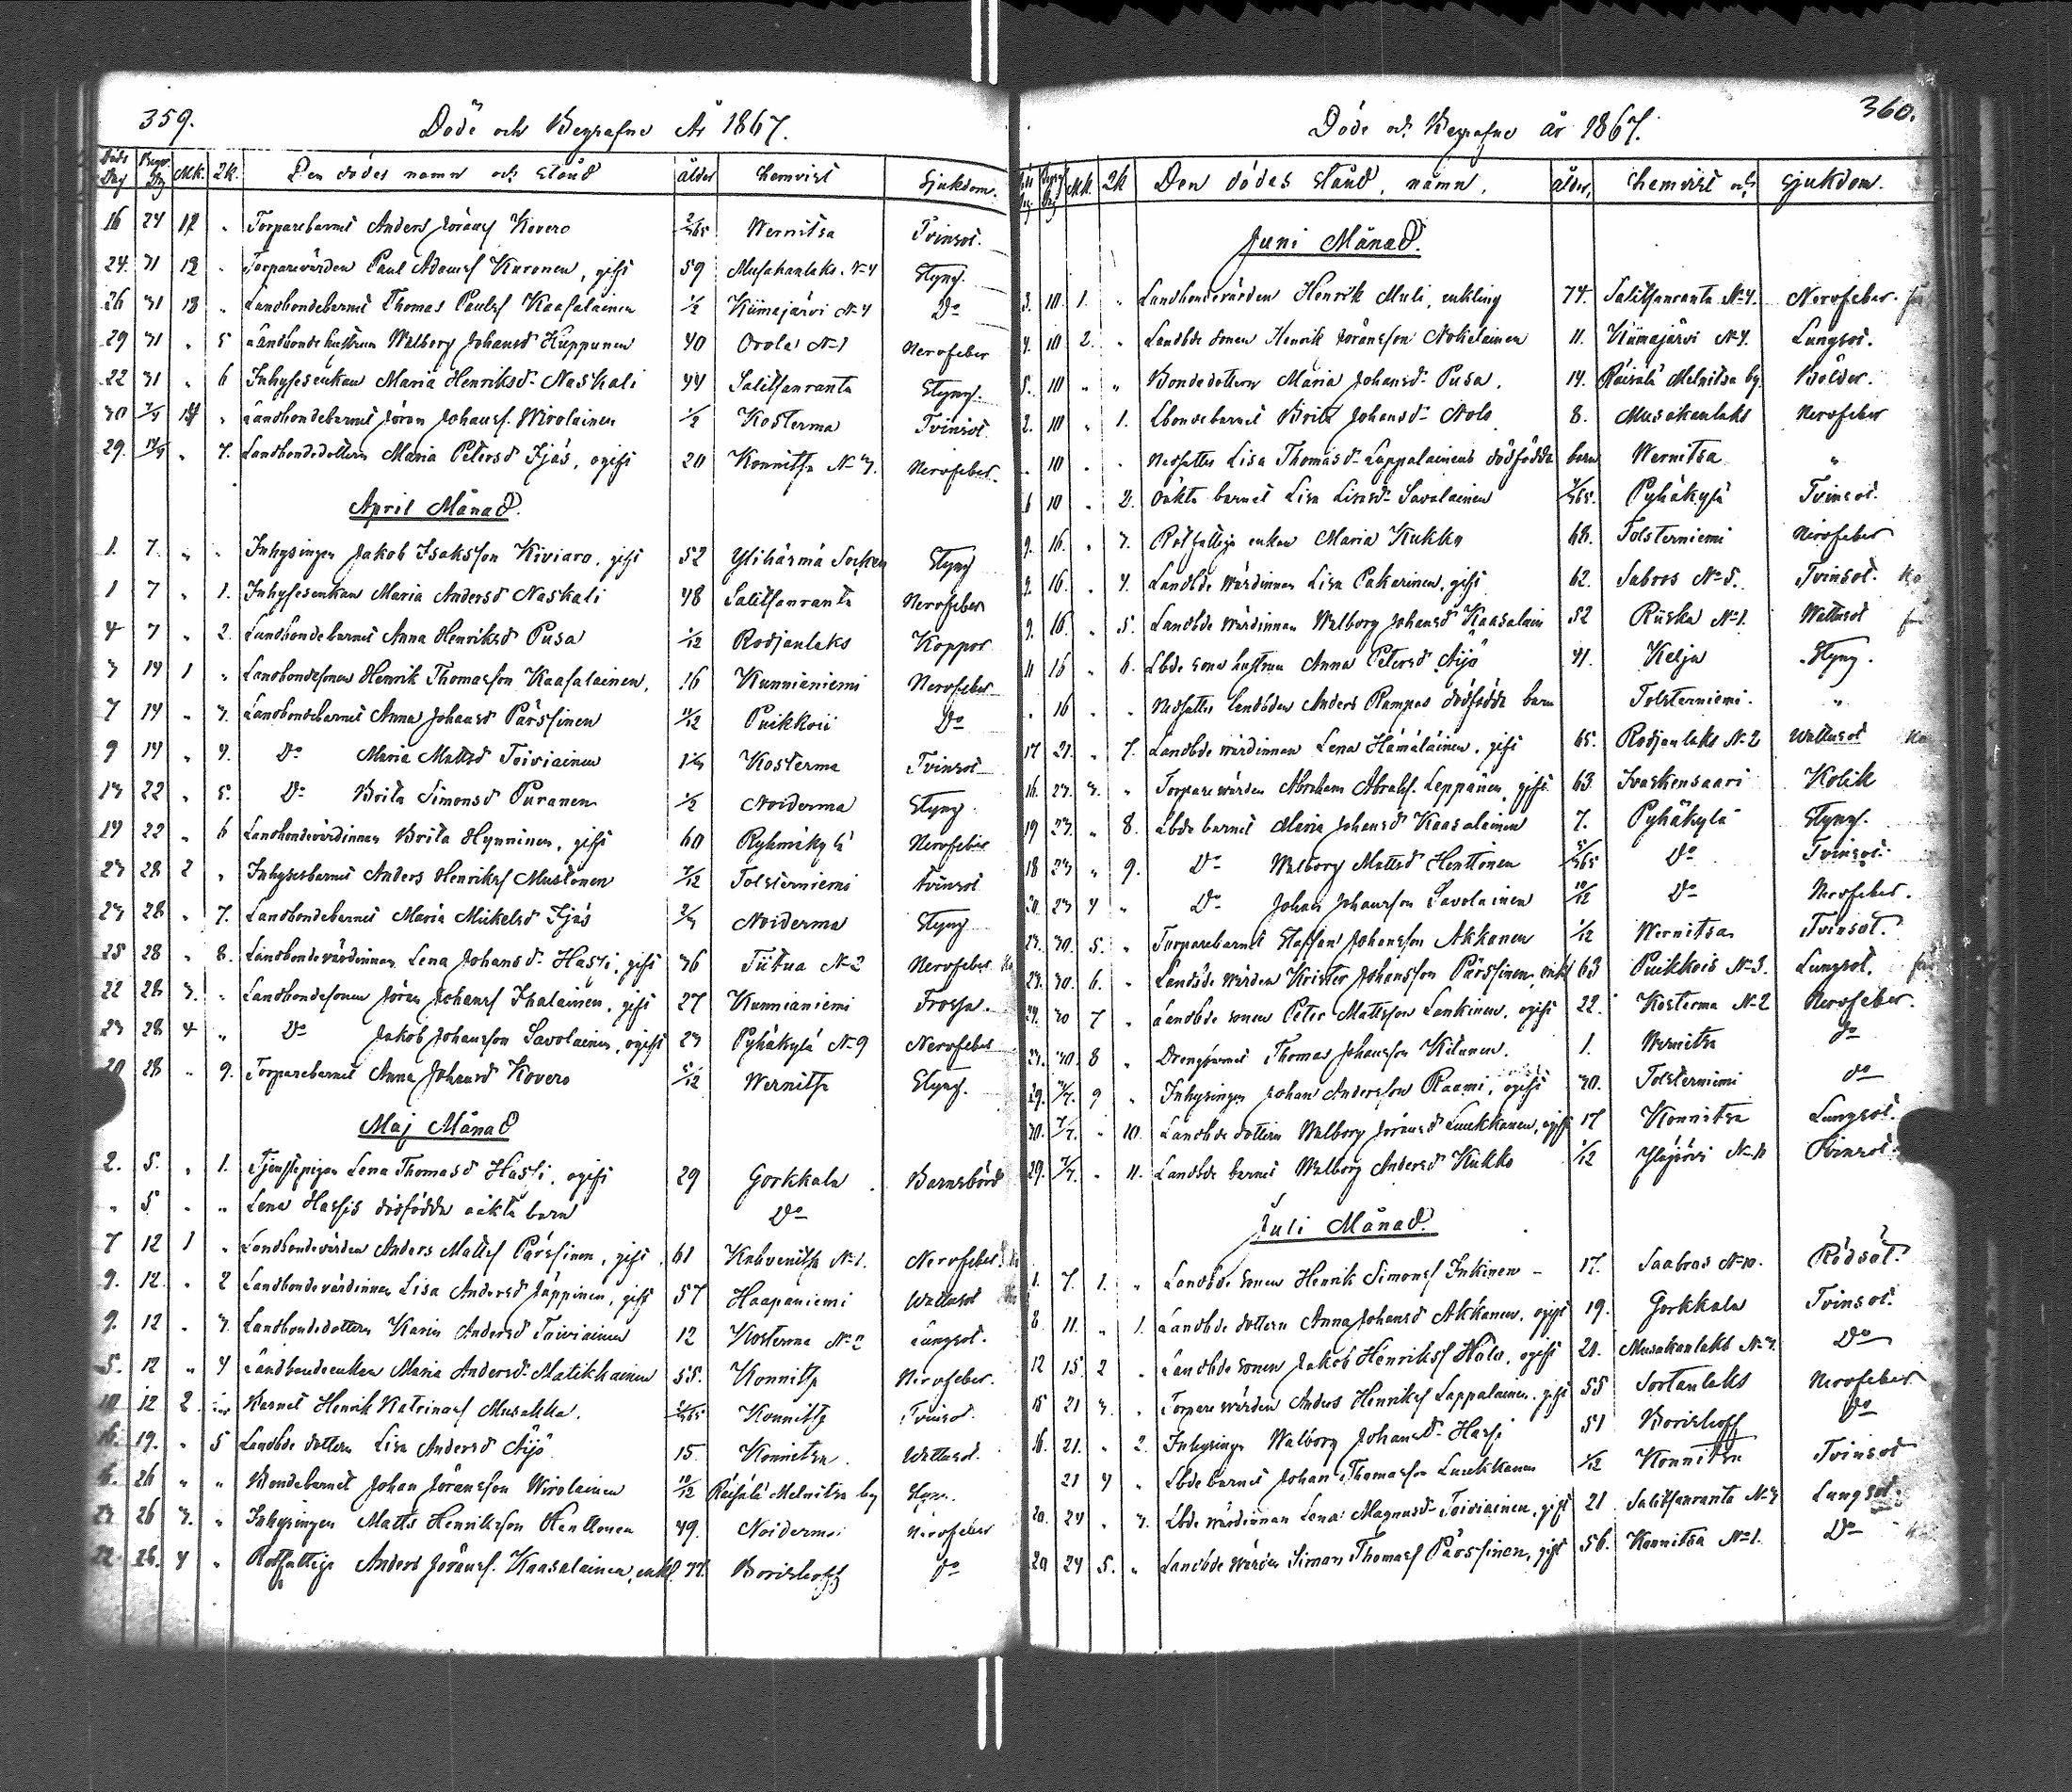 359.
Döde och Begrafne År 1867.
Döds Dag Begr. Dag Mk. Qk. Den dödes namn och stånd ålder hemvist Sjukdom.
16 24 12 " Torparebarnet Anders Jöransf Kovero 2/365 Wernitsa Tvinsot.
24. 31 12 " Torparevärden Paul Adamsf Karonen, gift 59 Musakanlaks. N=4 Styng.
26 31 13 " Landbondebarnet Thomas Paulsf Kaasalainen 1/2 Kiimajärvi N=4 Do
29 31 " 5 Landbonde hustrun Walborg Johansd Kuppunen 40 Orola N=1 Nervfeber
22 31 " 6 Inhysesenkan Maria Henriksd Naskali 44 Salitsanranta Styng.
30 7/4 14 " Landbondebarnet Jöran Johansf. Wirolainen 1/2 Kosterma Tvinsot
29. 14/4 " 7. Landbondedottern Maria Petersd Ijäs, ogift 20 Konnitsa N=3. Nervfeber.
April Månad.
1. 7. " " Inhysingen Jakob Isaksson Kiviaro, gift 52 Ylihärmä Socken Styng
1 7 " 1. Inhysesenkan Maria Andersd Naskali 48 Salitsanranta Nervfeber
4 7 " 2. Landbondebarnet Anna Henriksd Pusa 1/12 Rodjanlaks Koppor
3 14 1 " Landbondesonen Henrik Thomasson Kaasalainen. 16 Kunnianiemi Nervfeber
7 14 " 3. Landbondebarnet Anna Johansd Pärssinen 11/12 Puikkoii Do
9 14 " 4. Do Maria Mattsd Toiviainen Kosterma Tvinsot
13 22 " 5. Do Brita Simonsd Puranen 1/2 Noiderma Styng.
19 22 " 6 Landbondevärdinnan Brita Hynninen, gift 60 Ryhmäkylä Nervfeber
23 28 2 " Inhysesbarnet Anders Henriksf Mustonen Tolsterniemi Tvinsot
23 28 " 7. Landbondebarnet Maria Mickelsd Ijäs Noiderma Styng
25 28 " 8. Landbondevärdinnan Lena Johansd Hassi, gift 36 Tiitua N=2 Nervfeber
22 28 3. " Landbondesonen Jöran Johansf Ihalainen, gift 27 Kunnianiemi Frossa.
23 28 4 " Do Jakob Johansson Savolainen, ogift 23 Pyhäkylä N=9 Nervfeber
20 28 " 9. Torparebarnet Anna Johansd Kovero 5/12 Wernitsa Styng.
Maj Månad
2. 5. " 1. Tjenstepigan Lena Thomasd Hassi, ogift 29 Gorkkala Barnsbörd
" 5 " " Lena Hassis dödfödda oäkta barn Do
7 12 1 " Landbondevärden Anders Mattsf Pärssinen, gift 61 Kahvenitsa N=1. Nervfeber.
9. 12. " 2 Landbondevärdinnan Lisa Andersd Jäppinen, gift 57 Haapaniemi Wattusot
9. 12 " 3. Landbondedottern Karin Andersd Toiviainen 12 Kosterma N=2 Lungsot.
5. 12 " 4 Landbondeenkan Maria Andersd Matikkainen 55. Konnitsa Nervfeber.
10 12 2 Barnet Henrik Katrinasf Musakka. Konnitsa Tvinsot.
16. 19. " 5 Landbde dottern Lisa Andersd Äijö 15. Konnitsa. Wattusot.
16. 26 " " Bondebarnet Johan Jöransson Wirolainen 10/12 Räisälä Melnitsa by Styng.
23 26 3. " Inhysingen Matts Henriksson Henttonen 49. Noiderma Nervfeber
22 26. 4 " Rotfattige Anders Jöransf. Kaasalainen, enkl. 77. Borishoff do
360.
Döde och Begrafne år 1867.
Döds Dag Begraf Dag Mk. Qk Den dödes stånd, namn. ålder, hemvist och sjukdom.
Juni Månad.
3. 10. 1. " Landbondevärden Henrik Muli, enkling 74. Salitsanranta N=4. Nervfeber.
4. 10 2. " Landbde sonen Henrik Jöransson Nokelainen 11. Kiimajärvi N=4. Lungsot.
5. 10 " " Bondedottern Maria Johansd Pusa. 14. Räisälä Melnitsa by. Bölder.
2. 10 " 1. Lbondebarnet Brita Johansd Nolo 8. Musakanlaks Nervfeber
" 10 " " Nedsattes Lisa Thomasd Lappalainens dödfödda barn Wernitsa "
6 10 " 2. Oäkta barnet Lisa Lisasd Savolainen Pyhäkylä Tvinsot.
9. 16. " 3. Rotfattige enkan Maria Kukko 68. Tolsterniemi Nervfeber
9. 16. " 4. Landbde värdinnan Lisa Pakarinen, gift 62. Sabros N=5. Tvinsot.
9. 16. " 5. Landbde värdinnan Walborg Johansd Kaasalain 52 Riiska N=1. Wattusot
11 16 " 6. Lbde sone hustrun Anna Petersd Äijö 41. Kelja Styng.
" 16 " " Nedsattes landbden Anders Rampas dödfödda barn Tolsterniemi. "
17 21. " 7. Landbde värdinnan Lena Hämäläinen, gift 65. Rodjanlaks N=2 Wattusot
16. 23. 3. " Torpare värden Abraham Abrahf. Leppänen, gift 63. Ivaskensaari Kolik
19 23. " 8. Lbde barnet Maria Johansd Kaasalainen 7. Pyhäkylä Styng.
18 23 " 9. Do Walborg Mattsd Henttonen Do Tvinsot.
20. 23 4 " Do Johan Johansson Savolainen 10/12 Do Nervfeber.
23. 30. 5. " Torparebarnet Staffan Johansson Akkanen 1/12 Wernitsa Tvinsot.
23. 30. 6. " Landbde värden Krister Johansson Pärssinen, enkl 63 Puikkois N=3. Lungsot.
24. 30 7 " Landbde sonen Peter Mattsson Lankinen, ogift 22. Kosterma N=2 Nervfeber.
23. 30. 8 " Drengbarnet Thomas Johansson Kilunen. 1. Wernitsa do
29. 7/7. 9 " Inhysingen Johan Andersson Raami, ogift 30. Tolsterniemi do
30. 7/7. " 10. Landbde dottern Walborg Jöransd Luukkanen, ogift 17 Konnitsa Lungsot.
29. 7/7. " 11. Landbde barnet Walborg Andersd Kukko 1/12 Yläjärvi N=10 Tvinsot.
Juli Månad.
1. 7. 1. " Landbde sonen Henrik Simonsf Inkinen - 17. Saabros N=10. Rödsot.
8. 11. " 1. Landbde dottern Anna Johansd Akkanen, ogift 19. Gorkkala Tvinsot.
12 15 2 " Landbde sonen Jakob Henriksf Holo, ogift 21. Musakanlaks N=3. Do
15 21 3. " Torpare värden Anders Henriksf Lappalainen, gift 55 Sortanlaks Nervfeber
16. 21. " 2. Inhysinge Walborg Johansd Hassi 51 Borishoff Do
21 4 " Lbde barnet Johan Thomasson Luukkanen 1/12 Konnitsa Tvinsot
20. 24 " 3. Lbde värdinnan Lena Magnusd Toiviainen, gift 21 Salitsanranta N=3 Lungsot.
20 24 5. " Landbde värden Simon Thomasf Pärssinen, gift 56. Konnitsa N=1. Do